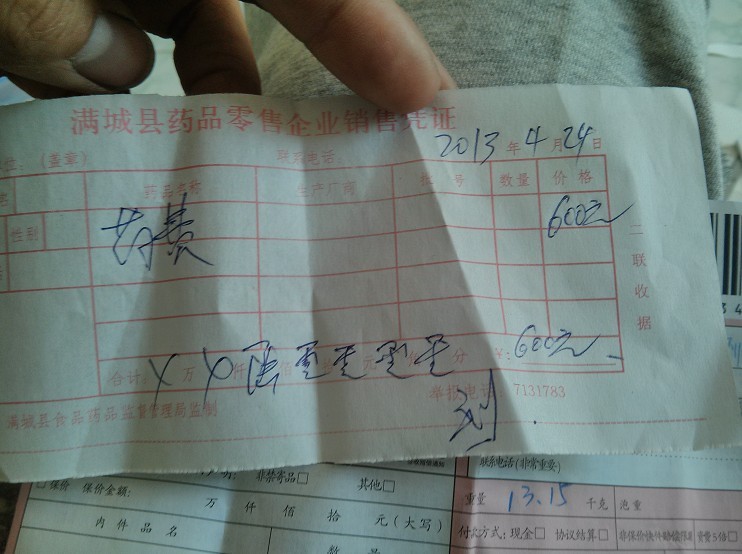 满城县药品零售企业销售凭证
(盖章) 联系电话: 2013年4月24日
药品名称 生产厂商 批号 数量 价格
性别 药费 600元
二联收据
合计: × 万 × 仟 陆 佰 零 零 元 零 零 分 ¥: 600元
满城县食品药品监督管理局监制 举报电话 7131783
刘
联系电话(非常重要)
□保价 保价金额: 万 仟 佰 拾 元(大写)
非禁寄品□ 其他□
重量 13.15 千克
付款方式: 现金□ 协议结算□
内件品名 数量